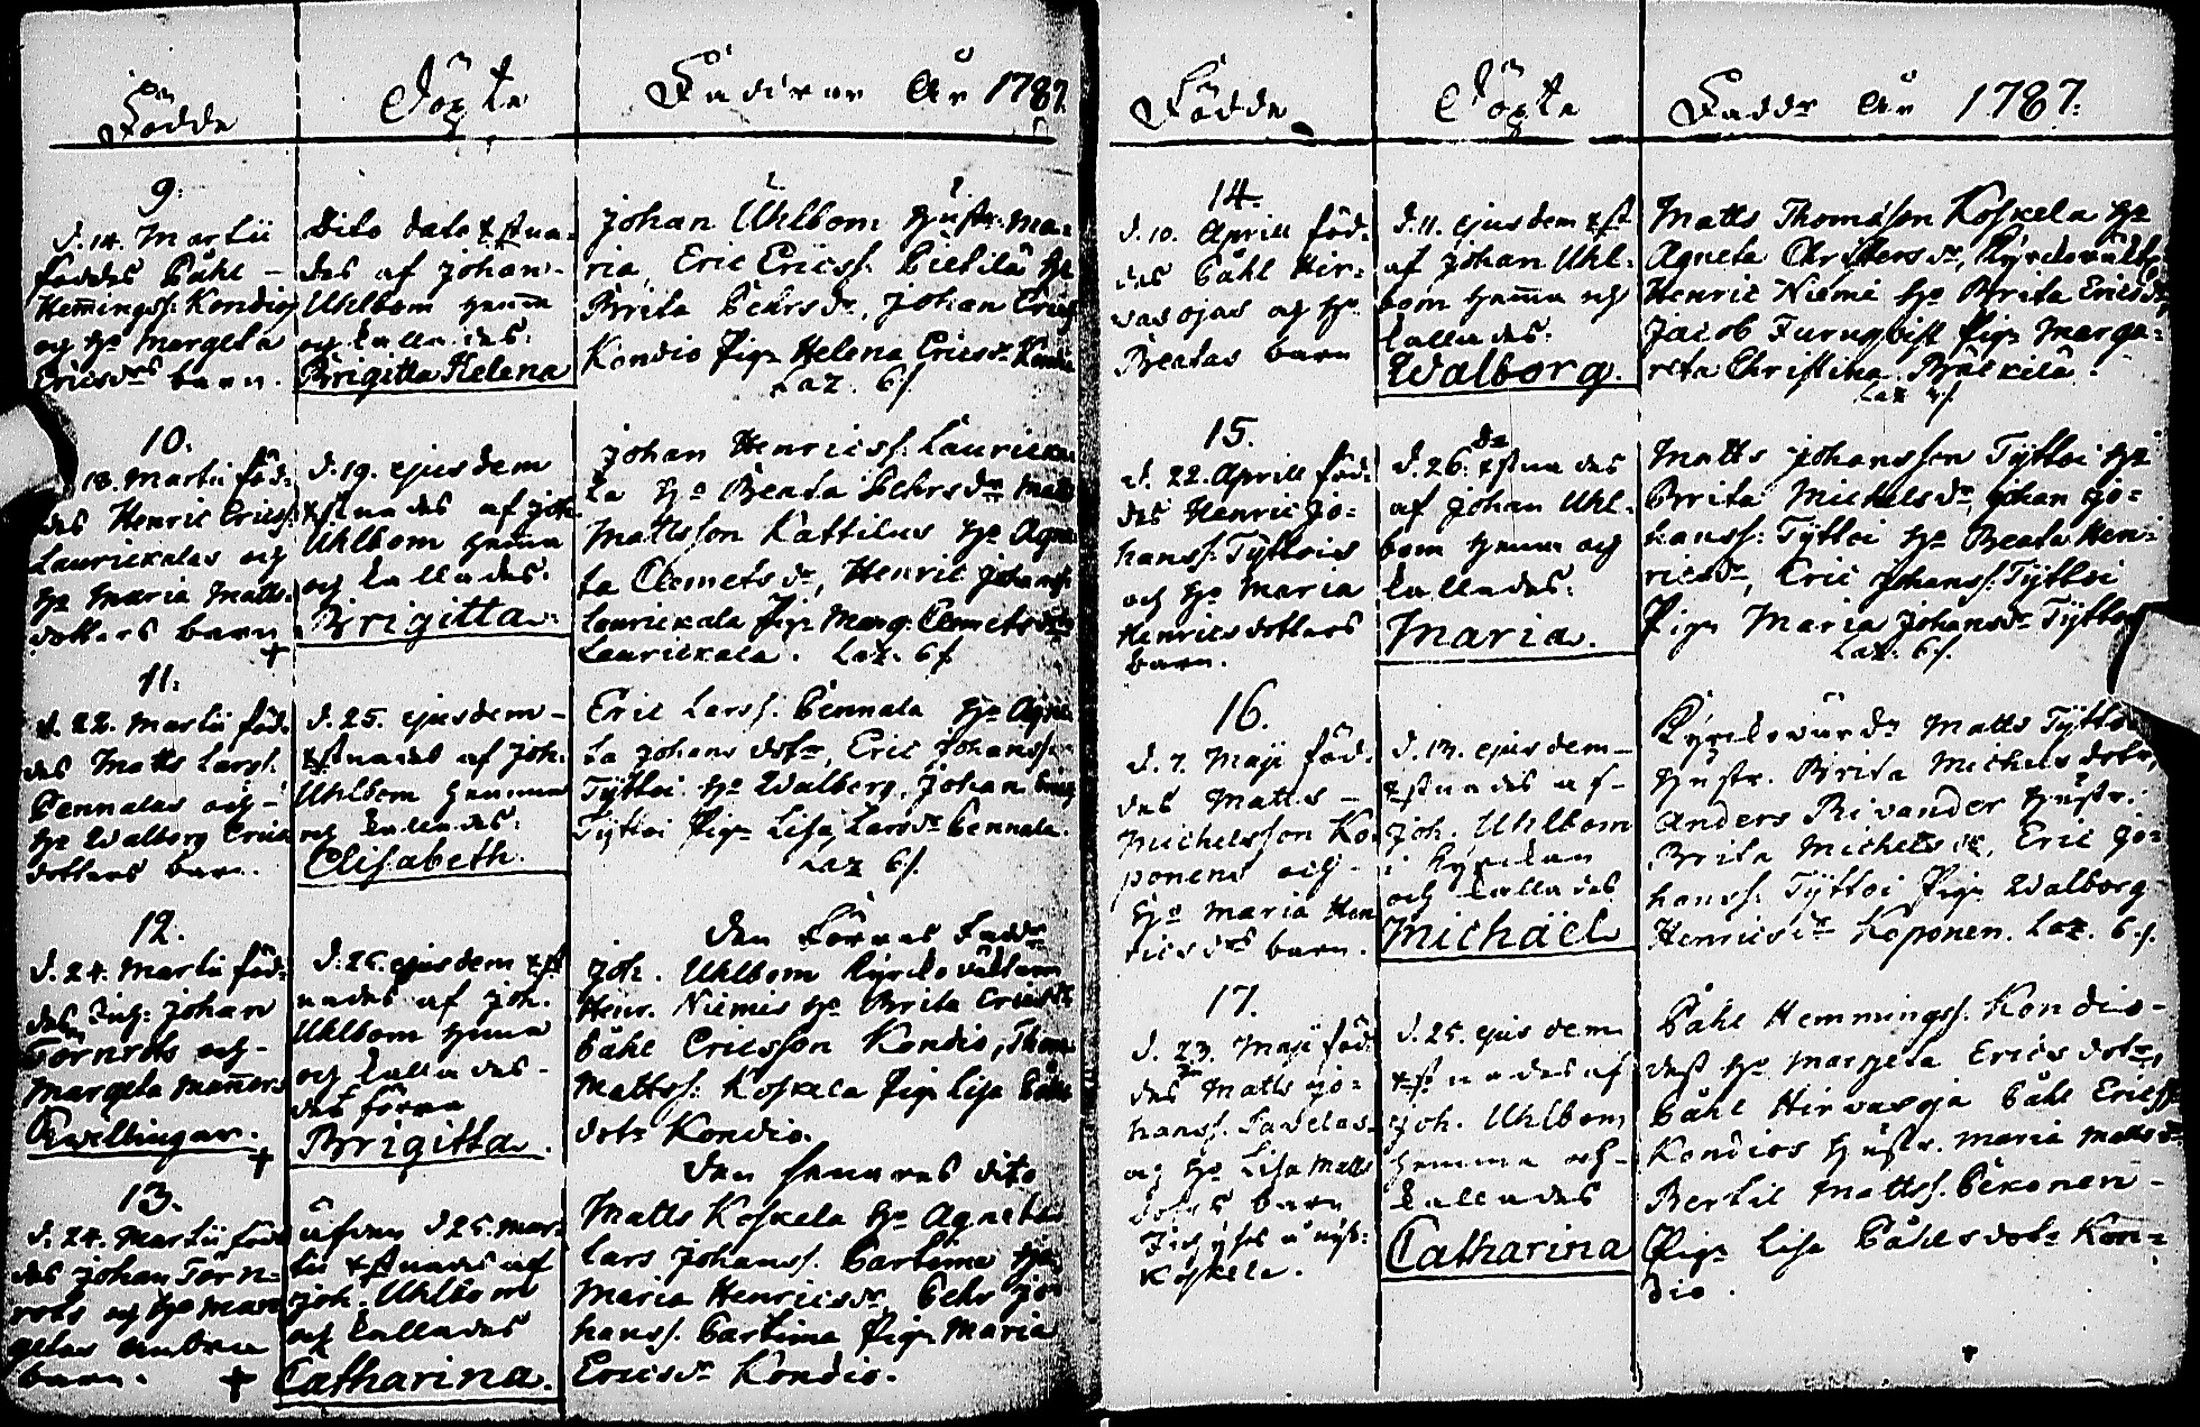 Födde
Döpte
Faddrar År 1787.
9.
d. 14. Martii
föddes Påhl
Hemingss: Kondios
och ho Margeta
Ericsdrs barn.
Dito dato xstna=
des af Johan
Uhlbom hemma
och kallades:
Brigitta Helena
Johan Uhlbom hustr. Ma=
ria, Eric Ericss. Pietilä ho
Brita Pehrsdr, Johan Erics
Kondio Pig. Helena Ericsdr Kondio
Laz. 6 s.
10.
18. Martii föd=
des Henric Ericss:
Laurickalas och
ho Maria Matts=
dotters barn
+
d. 19. ejusdem
xstnades af Joh.
Uhlbom hemma
och kallades.
Brigitta.
Johan Henricss. Lauricka=
la ho Beata Pehrsdr Matts
Mattsson Kattilus ho Agne=
ta Clemetsdr, Henric Johanss.
Laurickala Pig. Marg. Clemetsdr
Laurickala. Laz. 6 s
11.
d. 22. Martii föd=
des Matts Larss.
Pennalas och
ho Walborg Erics
dotters barn.
d. 25. ejusdem
xstnades af Joh.
Uhlbom hemma
och kallades.
Elisabeth.
Eric Larss. Pennala ho Agne=
ta Johans dotr, Eric Johansson
Tyttoi ho Walborg, Johan
Tyttoi Pig. Lisa Larsdr Pennala.
Laz 6 s.
12.
d. 24. Martii föd=
des Inh: Johan
Törnrots och
Margeta Mañers
Twillingar.
+
d. 25. ejusdem xst
nades af Joh.
Uhlbom hemma
och kallades
det förra
Brigitta.
Den Förras Faddr
Joh. Uhlbom Kyrckowäktaren
Henr. Niemis ho Brita Ericsdr
Påhl Ericsson Kondio, Thom.
Mattss: Koskela Pig. Lisa Påhls
dotr Kondio.
13.
d. 24. Martii föd=
des Johan Törn=
rots och ho Mar=
getas andra
barn. +
äfven d 25. Mar=
tii xstnades af
Joh. Uhlbom
och kallades
Catharina.
Den senares dito
Matts Koskela ho Agneta
Lars Johanss. Partima ho
Maria Henricsdr Pehr Jo=
hanss. Partima Pig. Maria
Ericsdr Kondio.
Födde
Döpte
Faddr År 1787.
14.
d. 10. Aprill föd=
des Påhl Hir=
wasojas och ho
Beatas barn
d. 11. ejusdem xst
af Johan Uhl=
bom hemma och
kallades.
Walborg.
Matts Thomasson Koskela ho
Agneta Christersdr, Kyrckowäkt.
Henric Niemi ho Brita Ericsdr
Jacob Furuqvist Pig. Marga=
reta Christina Björkilä.
Laz 4 s.
15.
d. 22. Aprill föd=
des Henric Jo=
hanss: Tyttois
och ho Maria
Henricsdotters
barn.
d. 26. xstnades
af Johan Uhl=
bom hemma och
kallades.
Maria.
Matts Johansson Tyttoi ho
Brita Michelsdr, Johan Jo=
hanss: Tyttoi ho Beata Hen=
ricsdr, Eric Johanss. Tyttoi
Pig. Maria Johansdr Tyttoi
Laz. 6 s.
16.
d. 7. Maji föd=
des Matts
Michelsson Ko=
ponens och
ho Maria Hen
ricsdrs barn.
d. 13. ejusdem
xstnades af
Joh. Uhlbom
i Kyrckan
och kallades
Michäel
Kyrckowärdn Matts Tyttoi
hustr. Brita Michelsdotr,
Anders Rivander hustr.
Brita Michelsdr, Eric Jo=
hanss. Tyttoi Pig. Walborg
Henricsdr Koponen. Laz. 6 s.
17.
d. 23. Maji föd=
des Matts Jo=
hanss. Tavelas
och ho Lisa Matts
dotrs barn
Koskela.
d. 25. ejusdem
xstnades af
Joh. Uhlbom
hemma och
kallades
Catharina
Påhl Hemmingss. Kondio
dess ho Margeta Ericsdotr,
Påhl Hirvasoja Påhl Ericss.
Kondios hustr. Maria Mattsdr
Bertil Mattss. Pekonen
Pig. Lisa Påhlsdotr Kon=
dio.